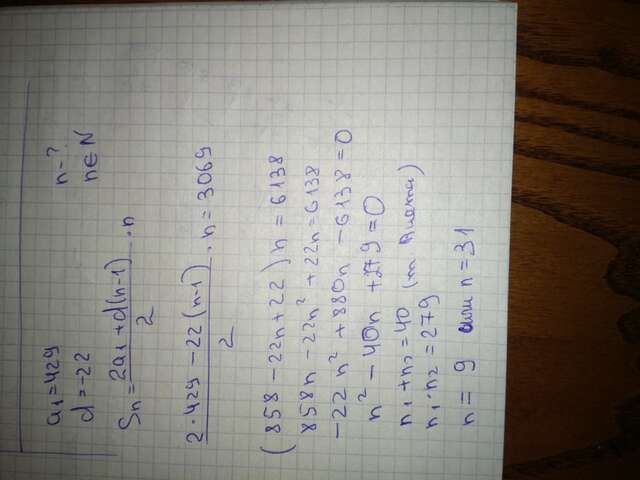 a₁=429 n-?
d=-22 n∈N
Sn = (2a₁+d(n-1))/2 · n
(2·429-22(n-1))/2 · n = 3069
(858-22n+22)n = 6138
858n-22n²+22n=6138
-22n²+880n-6138=0
n²-40n+279=0
n₁+n₂=40 (т Виета)
n₁·n₂=279
n=9 или n=31